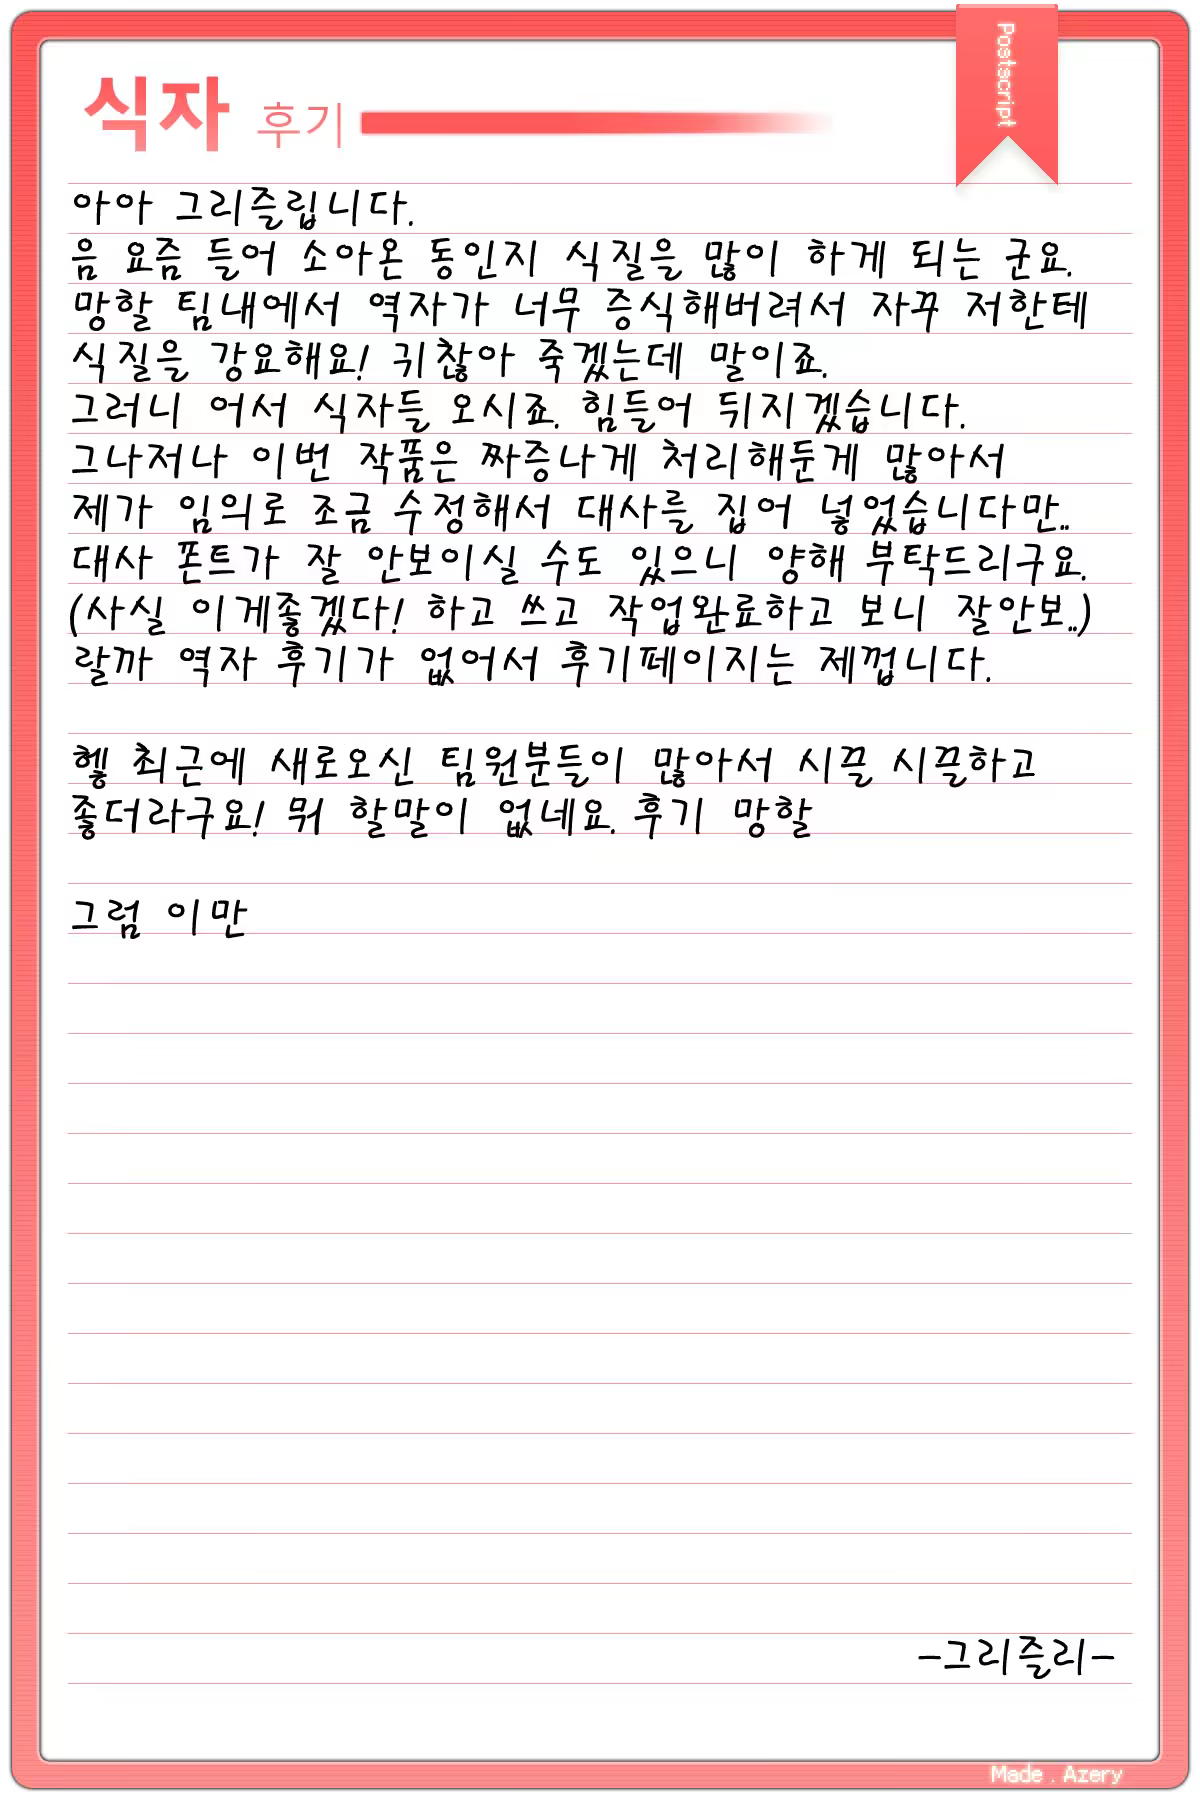 식자 후기
Postscript
아아 그리즐립니다.
음 요즘 들어 소아온 동인지 식질을 많이 하게 되는 군요.
망할 팀내에서 역자가 너무 증식해버려서 자꾸 저한테
식질을 강요해요! 귀찮아 죽겠는데 말이죠.
그러니 어서 식자들 오시죠. 힘들어 뒤지겠습니다.
그나저나 이번 작품은 짜증나게 처리해둔게 많아서
제가 임의로 조금 수정해서 대사를 집어 넣었습니다만..
대사 폰트가 잘 안보이실 수도 있으니 양해 부탁드리구요.
(사실 이게좋겠다! 하고 쓰고 작업완료하고 보니 잘안보..)
랄까 역자 후기가 없어서 후기페이지는 제껍니다.
헿 최근에 새로오신 팀원분들이 많아서 시끌 시끌하고
좋더라구요! 뭐 할말이 없네요. 후기 망할
그럼 이만
-그리즐리-
Made . Azery